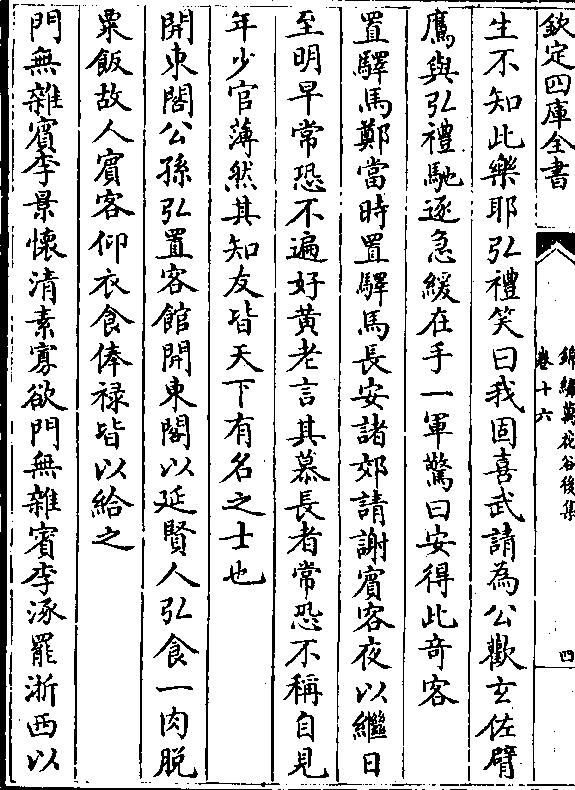 欽定四庫全書
錦繡萬花谷後集
卷十六
四
生不知此樂耶弘禮笑曰我固喜武請為公歡玄佐臂
鷹與弘禮馳逐急緩在手一軍驚曰安得此奇客
置驛馬鄭當時置驛馬長安諸郊請謝賓客夜以繼日
至明早常恐不遍好黄老言其慕長者常恐不稱自見
年少官薄然其知友皆天下有名之士也
開東閤公孫弘置客館開東閣以延賢人弘食一肉脱
粟飯故人賓客仰衣食俸禄皆以給之
門無雜賓李景懷清素寡欲門無雜賓李涿罷浙西以